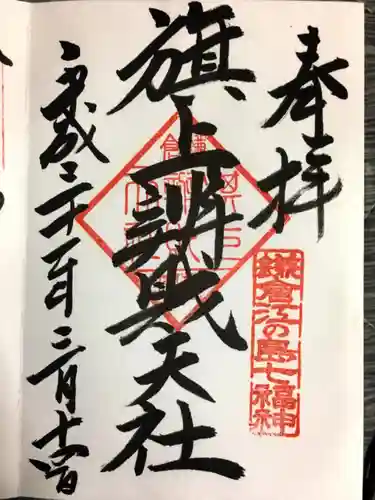 奉拝
鎌倉江の島七福神
旗上辨財天社
平成二十一年三月十六日